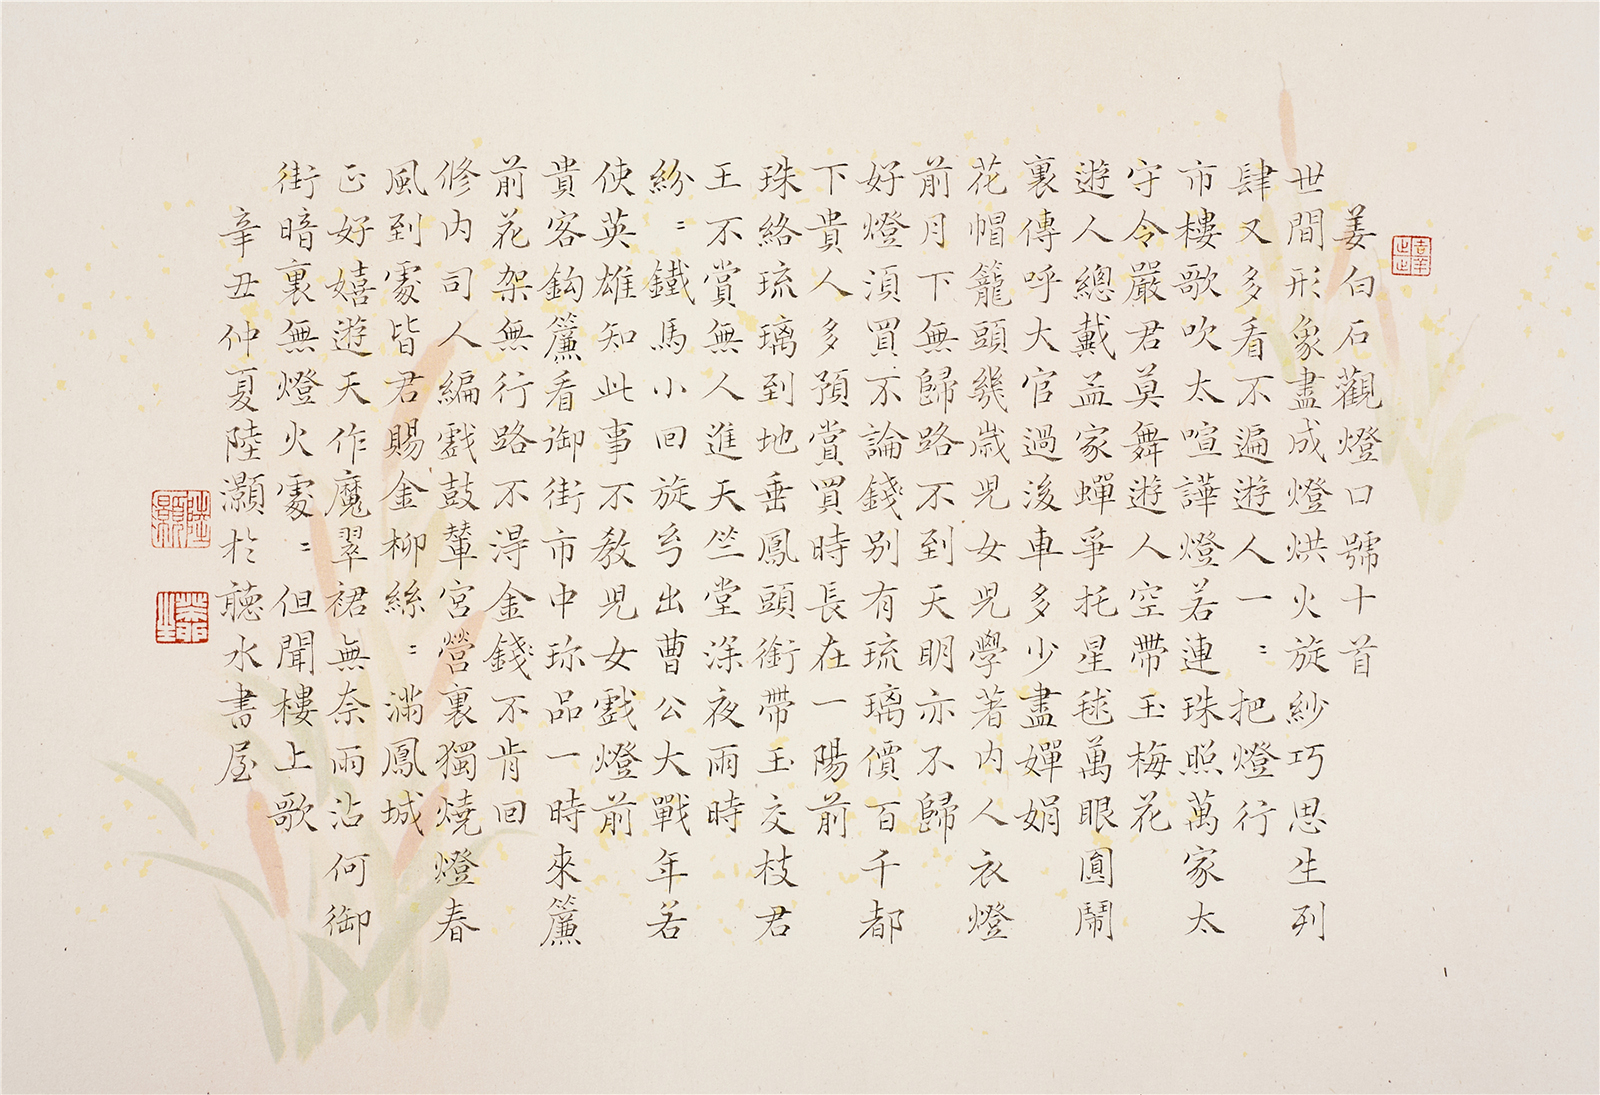 姜白石觀燈口號十首
世間形象盡成燈烘火旋紗巧思生列
肆又多看不遍遊人一〻把燈行
市樓歌吹太喧譁燈若連珠照萬家太
守令嚴君莫舞遊人空帶玉梅花
遊人總戴孟家蟬爭托星毬萬眼圓鬧
裏傳呼大官過後車多少盡嬋娟
花帽籠頭幾歲兒女兒學著內人衣燈
前月下無歸路不到天明亦不歸
好燈須買不論錢別有琉璃價百千都
下貴人多預賞買時長在一陽前
珠絡琉璃到地垂鳳頭銜帶玉交枝君
王不賞無人進天竺堂深夜雨時
紛〻鐵馬小回旋幻出曹公大戰年若
使英雄知此事不教兒女戲燈前
貴客鈎簾看御街市中珍品一時來簾
前花架無行路不得金錢不肯回
修內司人編戲鼓輦宮營裏獨燒燈春
風到處皆君賜金柳絲〻滿鳳城
正好嬉遊天作魔翠裙無奈雨沾何御
街暗裏無燈火處〻但聞樓上歌
辛丑仲夏陸灝於聽水書屋
陸灝